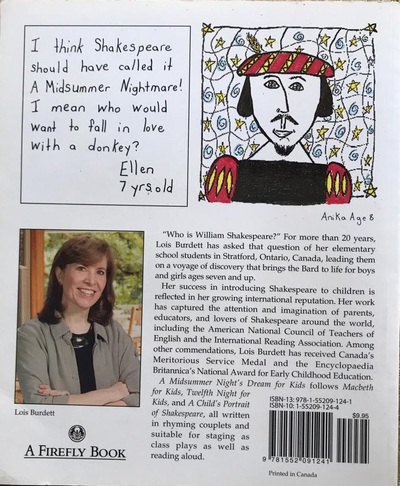 I think Shakespeare
should have called it
A Midsummer Nightmare!
I mean who would
want to fall in love
with a donkey?
Ellen
7 yrs old
Anika Age 8
"Who is William Shakespeare?" For more than 20 years,
Lois Burdett has asked that question of her elementary
school students in Stratford, Ontario, Canada, leading them
on a voyage of discovery that brings the Bard to life for boys
and girls ages seven and up.
Her success in introducing Shakespeare to children is
reflected in her growing international reputation. Her work
has captured the attention and imagination of parents,
educators, and lovers of Shakespeare around the world,
including the American National Council of Teachers of
English and the International Reading Association. Among
other commendations, Lois Burdett has received Canada's
Meritorious Service Medal and the Encyclopaedia
Britannica's National Award for Early Childhood Education.
A Midsummer Night's Dream for Kids follows Macbeth
for Kids, Twelfth Night for
Kids, and A Child's Portrait
of Shakespeare, all written
in rhyming couplets and
suitable for staging as
class plays as well as
reading aloud.
Lois Burdett
A FIREFLY BOOK
ISBN-13: 978-1-55209-124-1
ISBN-10: 1-55209-124-4
$9.95
9 781552 091241
Printed in Canada